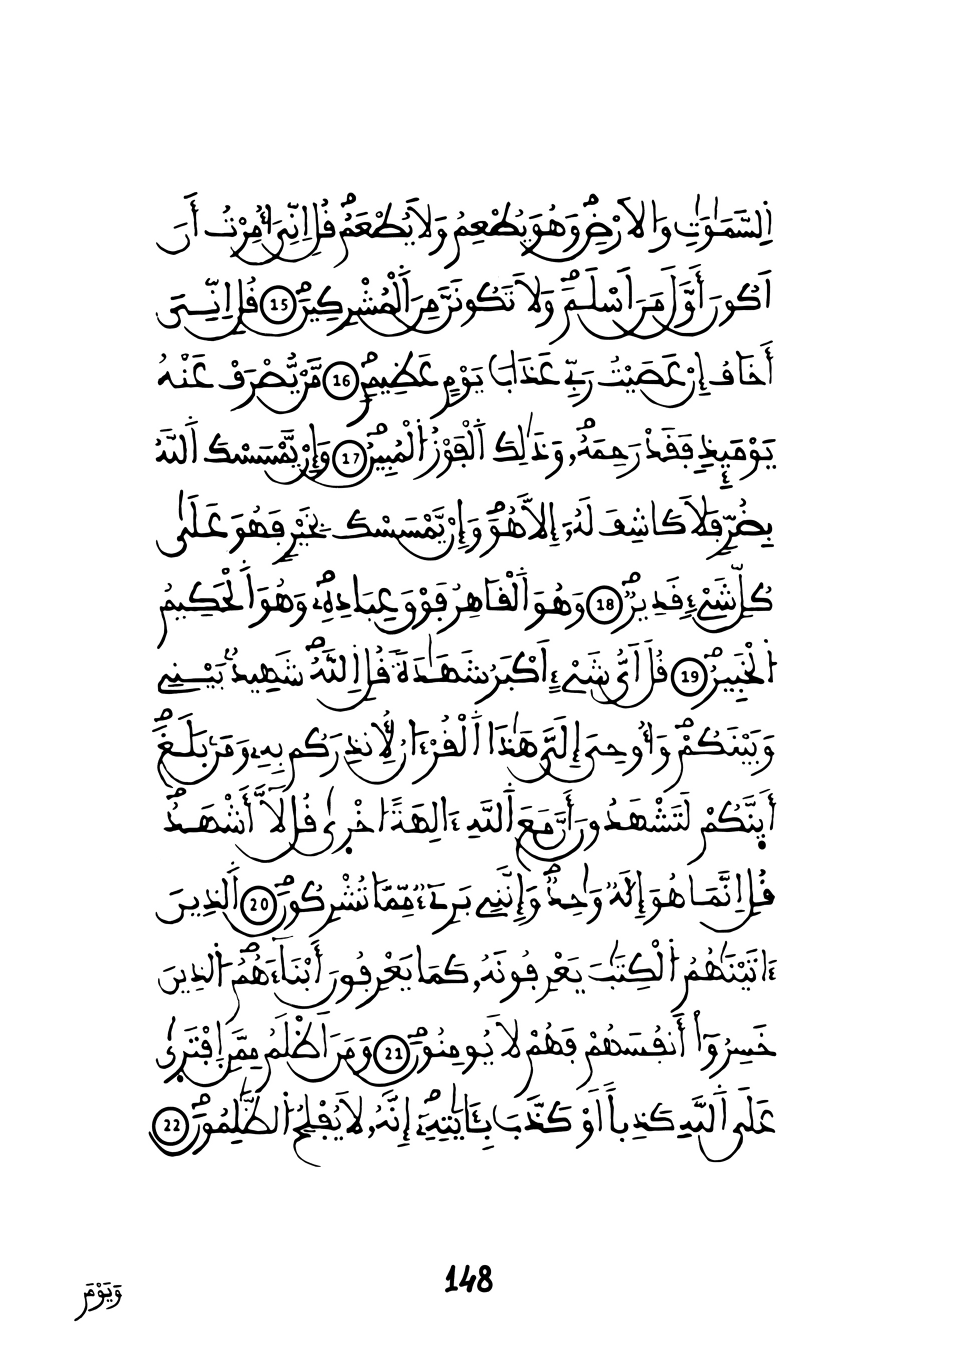 اِ۬لسَّمَٰوَٰتِ وَالَارْضِۖ وَهُوَ يُطْعِمُ وَلَا يُطْعَمُۖ قُلِ اِنِّيَ أُمِرْتُ أَنَ
اَكُونَ أَوَّلَ مَنَ اَسْلَمَۖ وَلَا تَكُونَنَّ مِنَ اَ۬لْمُشْرِكِينَۖ 15 قُلِ اِنِّيَ
أَخَافُ إِنْ عَصَيْتُ رَبِّے عَذَابَ يَوْمٍ عَظِيمٖۖ 16 مَّنْ يُّصْرَفْ عَنْهُ
يَوْمَئِذٖ فَقَدْ رَحِمَهُۥۖ وَذَٰلِكَ اَ۬لْفَوْزُ اُ۬لْمُبِينُۖ 17 وَإِنْ يَّمْسَسْكَ اَ۬للَّهُ
بِضُرّٖ فَلَا كَاشِفَ لَهُۥٓ إِلَّا هُوَۖ وَإِنْ يَّمْسَسْكَ بِخَيْرٖ فَهُوَ عَلَىٰ
كُلِّ شَےْءٖ قَدِيرٞۖ 18 وَهُوَ اَ۬لْقَاهِرُ فَوْقَ عِبَادِهِۦۖ وَهُوَ اَ۬لْحَكِيمُ
اُ۬لْخَبِيرُۖ 19 قُلَ اَيُّ شَےْءٍ اَكْبَرُ شَهَٰدَةٗۖ قُلِ اِ۬للَّهُۖ شَهِيدُۢ بَيْنِے
وَبَيْنَكُمْۖ وَأُوحِيَ إِلَيَّ هَٰذَا اَ۬لْقُرْءَانُ لِأُنذِرَكُم بِهِۦ وَمَنۢ بَلَغَۖ
أَئِنَّكُمْ لَتَشْهَدُونَ أَنَّ مَعَ اَ۬للَّهِ ءَالِهَةً اُخْرٜىٰ قُل لَّآ أَشْهَدُۖ
قُلِ اِنَّمَا هُوَ إِلَٰهٞ وَٰحِدٞۖ وَإِنَّنِے بَرِےٓءٞ مِّمَّا تُشْرِكُونَۖ 20 اَ۬لذِينَ
ءَاتَيْنَٰهُمُ اُ۬لْكِتَٰبَ يَعْرِفُونَهُۥ كَمَا يَعْرِفُونَ أَبْنَآءَهُمُۖ اُ۬لذِينَ
خَسِرُوٓاْ أَنفُسَهُمْ فَهُمْ لَا يُومِنُونَۖ 21 وَمَنَ اَظْلَمُ مِمَّنِ اِ۪فْتَرٜىٰ
عَلَى اَ۬للَّهِ كَذِباً اَوْ كَذَّبَ بِـَٔايَٰتِهِۦٓۖ إِنَّهُۥ لَا يُفْلِحُ اُ۬لظَّٰلِمُونَۖ 22
148
وَيَوْمَ